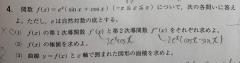 4. 関数 f(x)=eˣ(sin x+cos x) (−π≦x≦π) について、次の各問いに答え
よ。ただし、e は自然対数の底とする。
(1) f(x) の第1次導関数 f'(x) と第2次導関数 f''(x) をそれぞれ求めよ。
2eˣcosx 2eˣ(cosx−sinx)
(2) f(x) の極値を求めよ。
(3) 曲線 y=f(x) と x 軸で囲まれた図形の面積を求めよ。